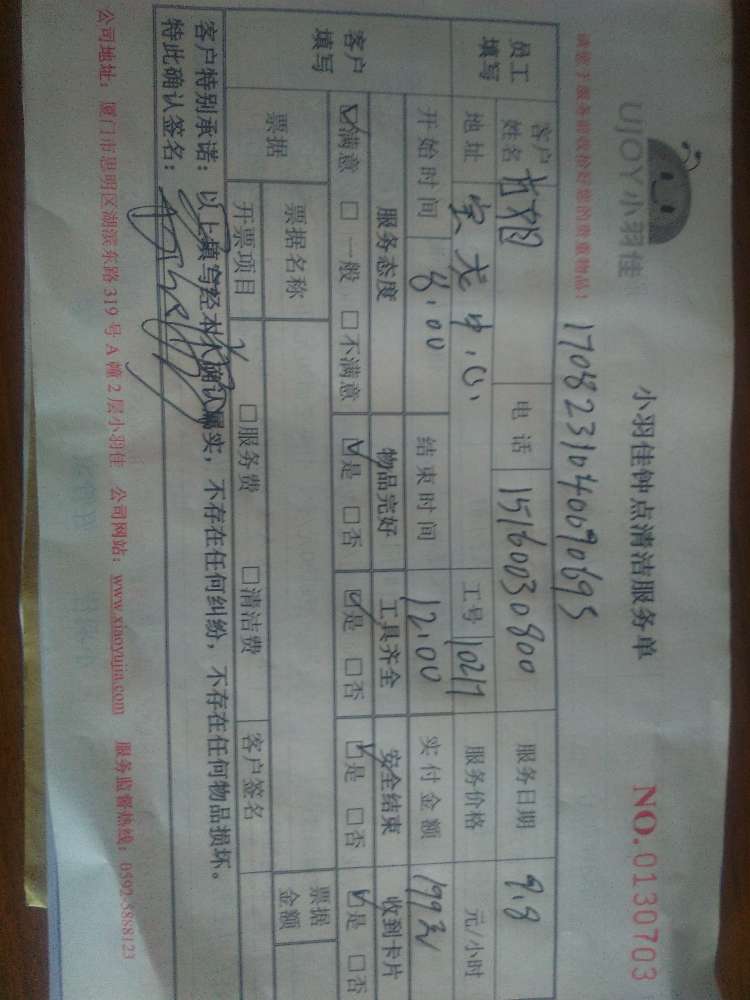 UJOY小羽佳
小羽佳钟点清洁服务单
NO.0130703
请您于服务前收拾好您的贵重物品!
170823104009069S
员工填写 客户姓名 电话 15160030800 服务日期 9.8
地址 宝龙中心 工号 10217 服务价格 元/小时
开始时间 8:00 结束时间 12:00 实付金额 199元
客户填写 服务态度 物品完好 工具齐全 安全结束 收到卡片
☑满意 □一般 □不满意 ☑是 □否 ☑是 □否 ☑是 □否 ☑是 □否
票据 票据名称 票据金额
开票项目 □服务费 □清洁费 客户签名
客户特别承诺:以上填写经本人确认属实,不存在任何纠纷,不存在任何物品损坏。
特此确认签名:
公司地址:厦门市思明区湖滨东路319号A幢2层小羽佳 公司网站:www.xiaoyujia.com 服务监督热线:0592-5888123